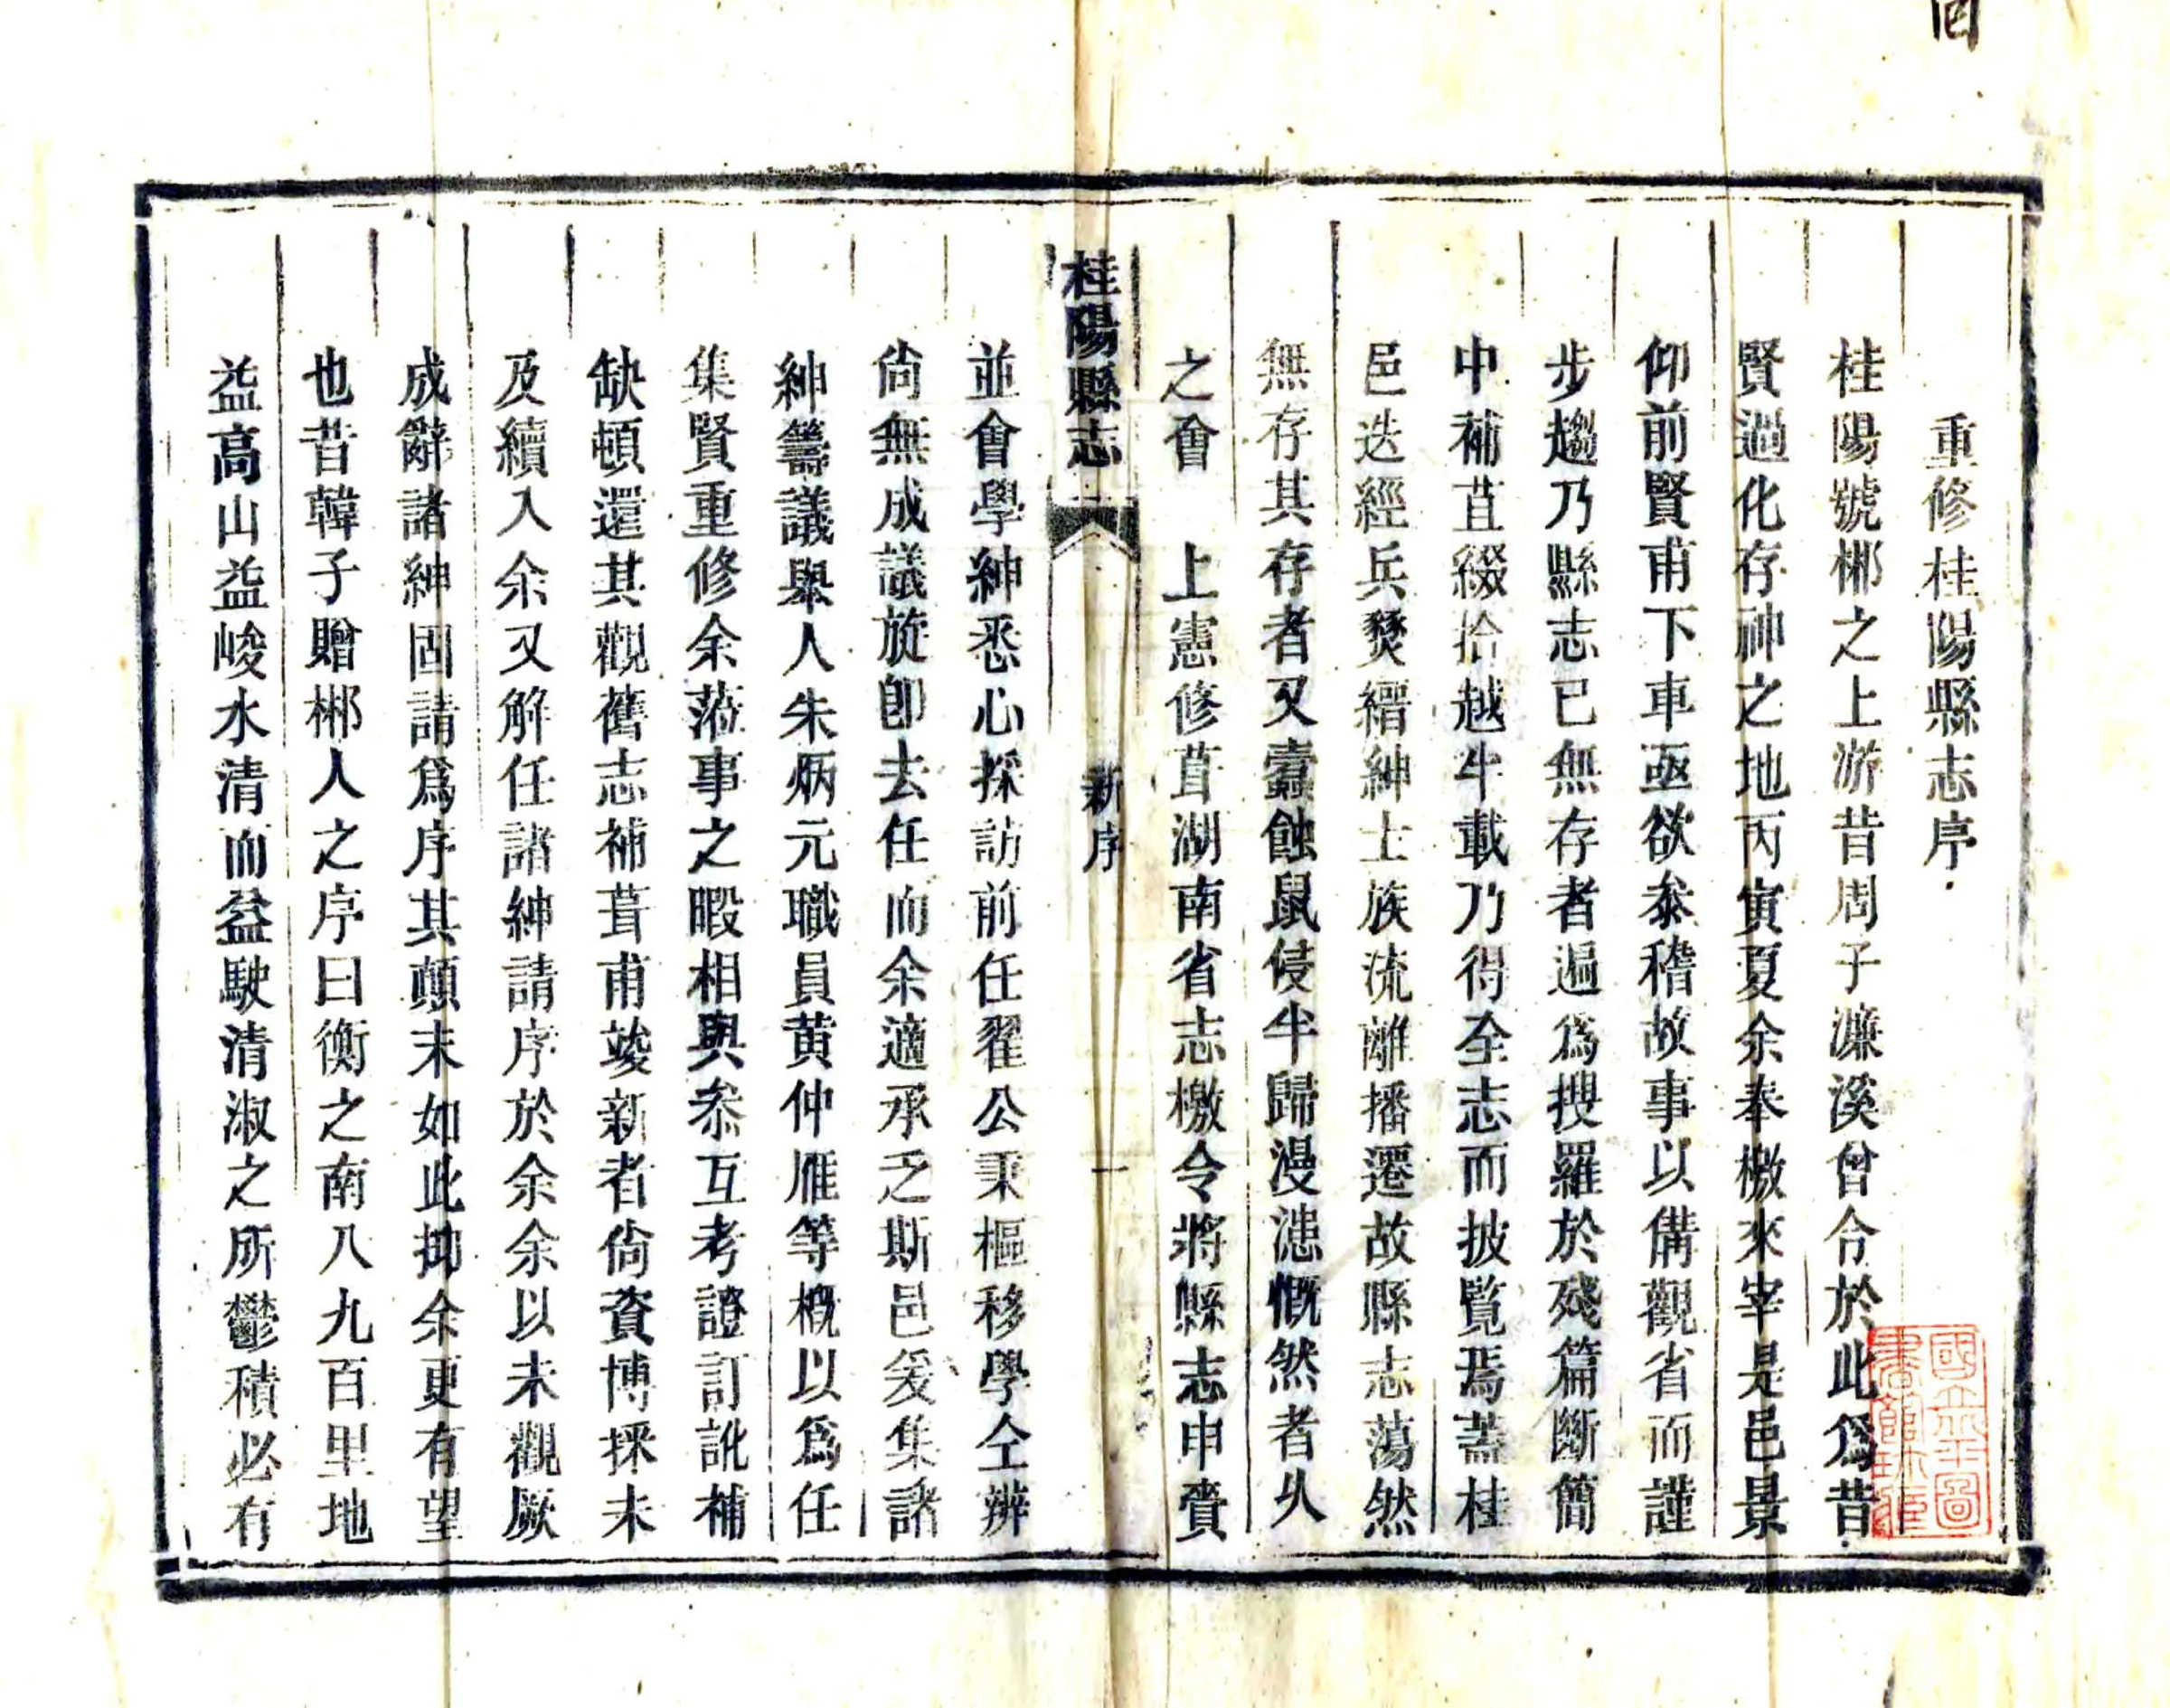 重修桂陽縣志序
桂陽號郴之上游昔周子濂溪曾令於此爲昔
賢過化存神之地丙寅夏余奉檄來宰是邑景
仰前賢甫下車亟欲叅稽故事以備觀省而謹
步趨乃縣志已無存者遍爲搜羅於殘篇斷簡
中補苴綴拾越半載乃得全志而披覧焉蓋桂
邑迭經兵燹縉紳士族流離播遷故縣志蕩然
無存其存者又蠹蝕鼠侵半歸漫漶慨然者久
之會　上憲修葺湖南省志檄令將縣志申賫
桂陽縣志
新序
一
並會學紳悉心採訪前任翟公秉樞移學仝辨
尙無成議旋卽去任而余適承乏斯邑爰集諸
紳籌議舉人朱炳元職員黃仲雁等槪以爲任
集賢重修余蒞事之暇相與叅互考證訂訛補
缺頓還其觀舊志補葺甫竣新者尙資博採未
及續入余又解任諸紳請序於余余以未觀厥
成辭諸紳固請爲序其顛末如此抑余更有望
也昔韓子贈郴人之序曰衡之南八九百里地
益高山益峻水清而益駛清淑之所鬱積必有
國立北平圖
書館珍藏